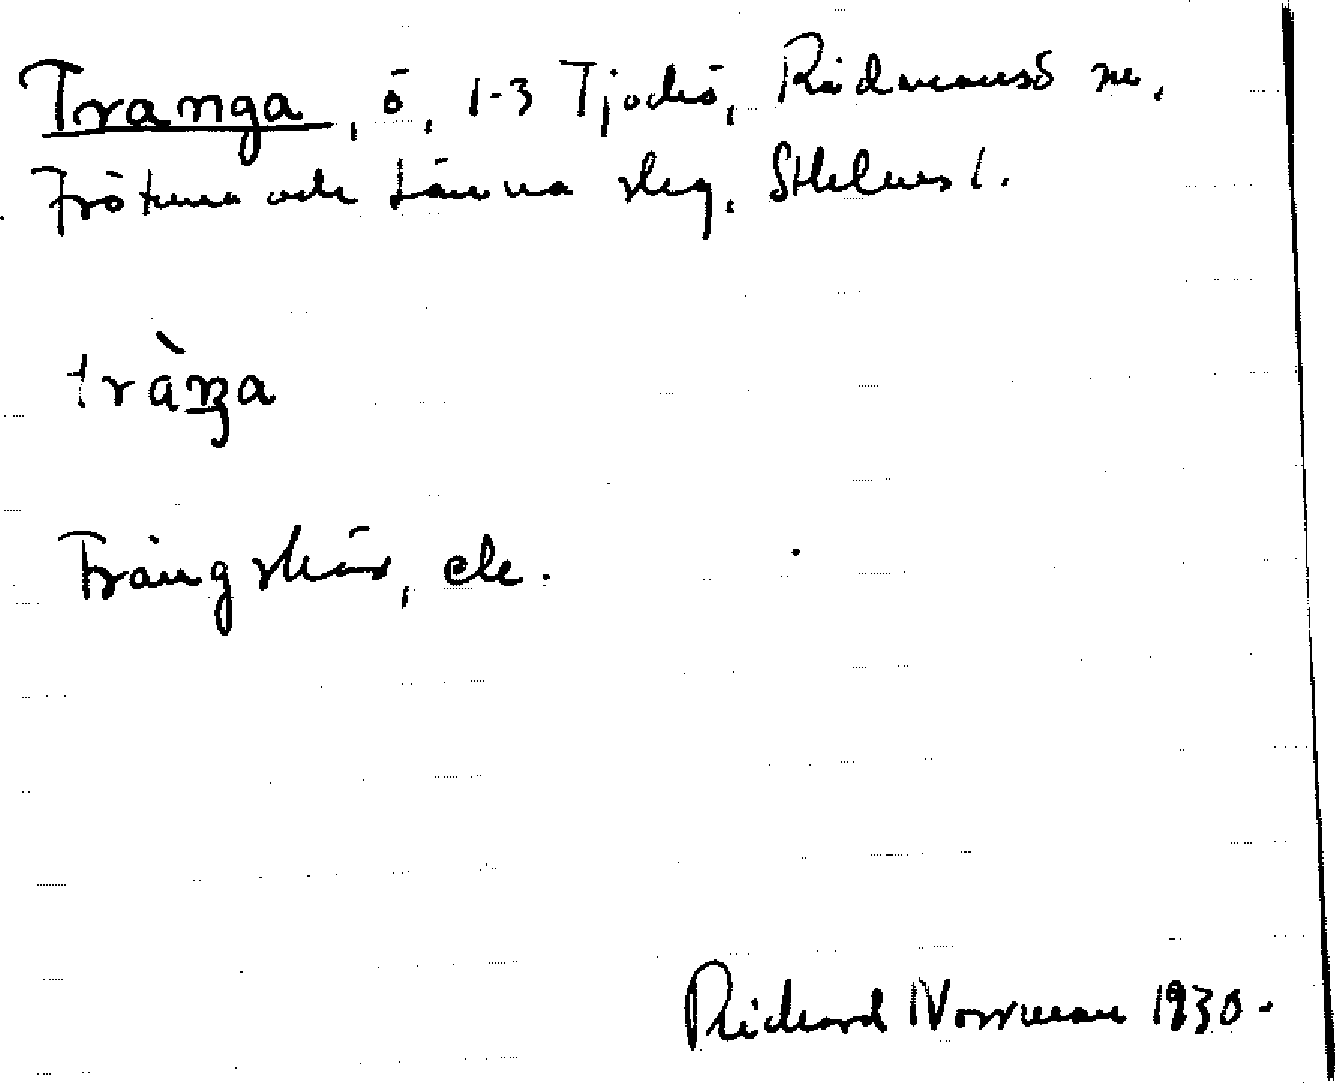 Tranga, ö, 1-3 Tjockö, Rådmansö sn,
Frötuna och Länna slg, Sthlms l.
tràŋa
Trängskär, etc.
Richard Norrman 1930.